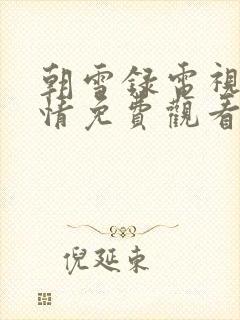 朝雪録電視
情免費觀看
倪延東